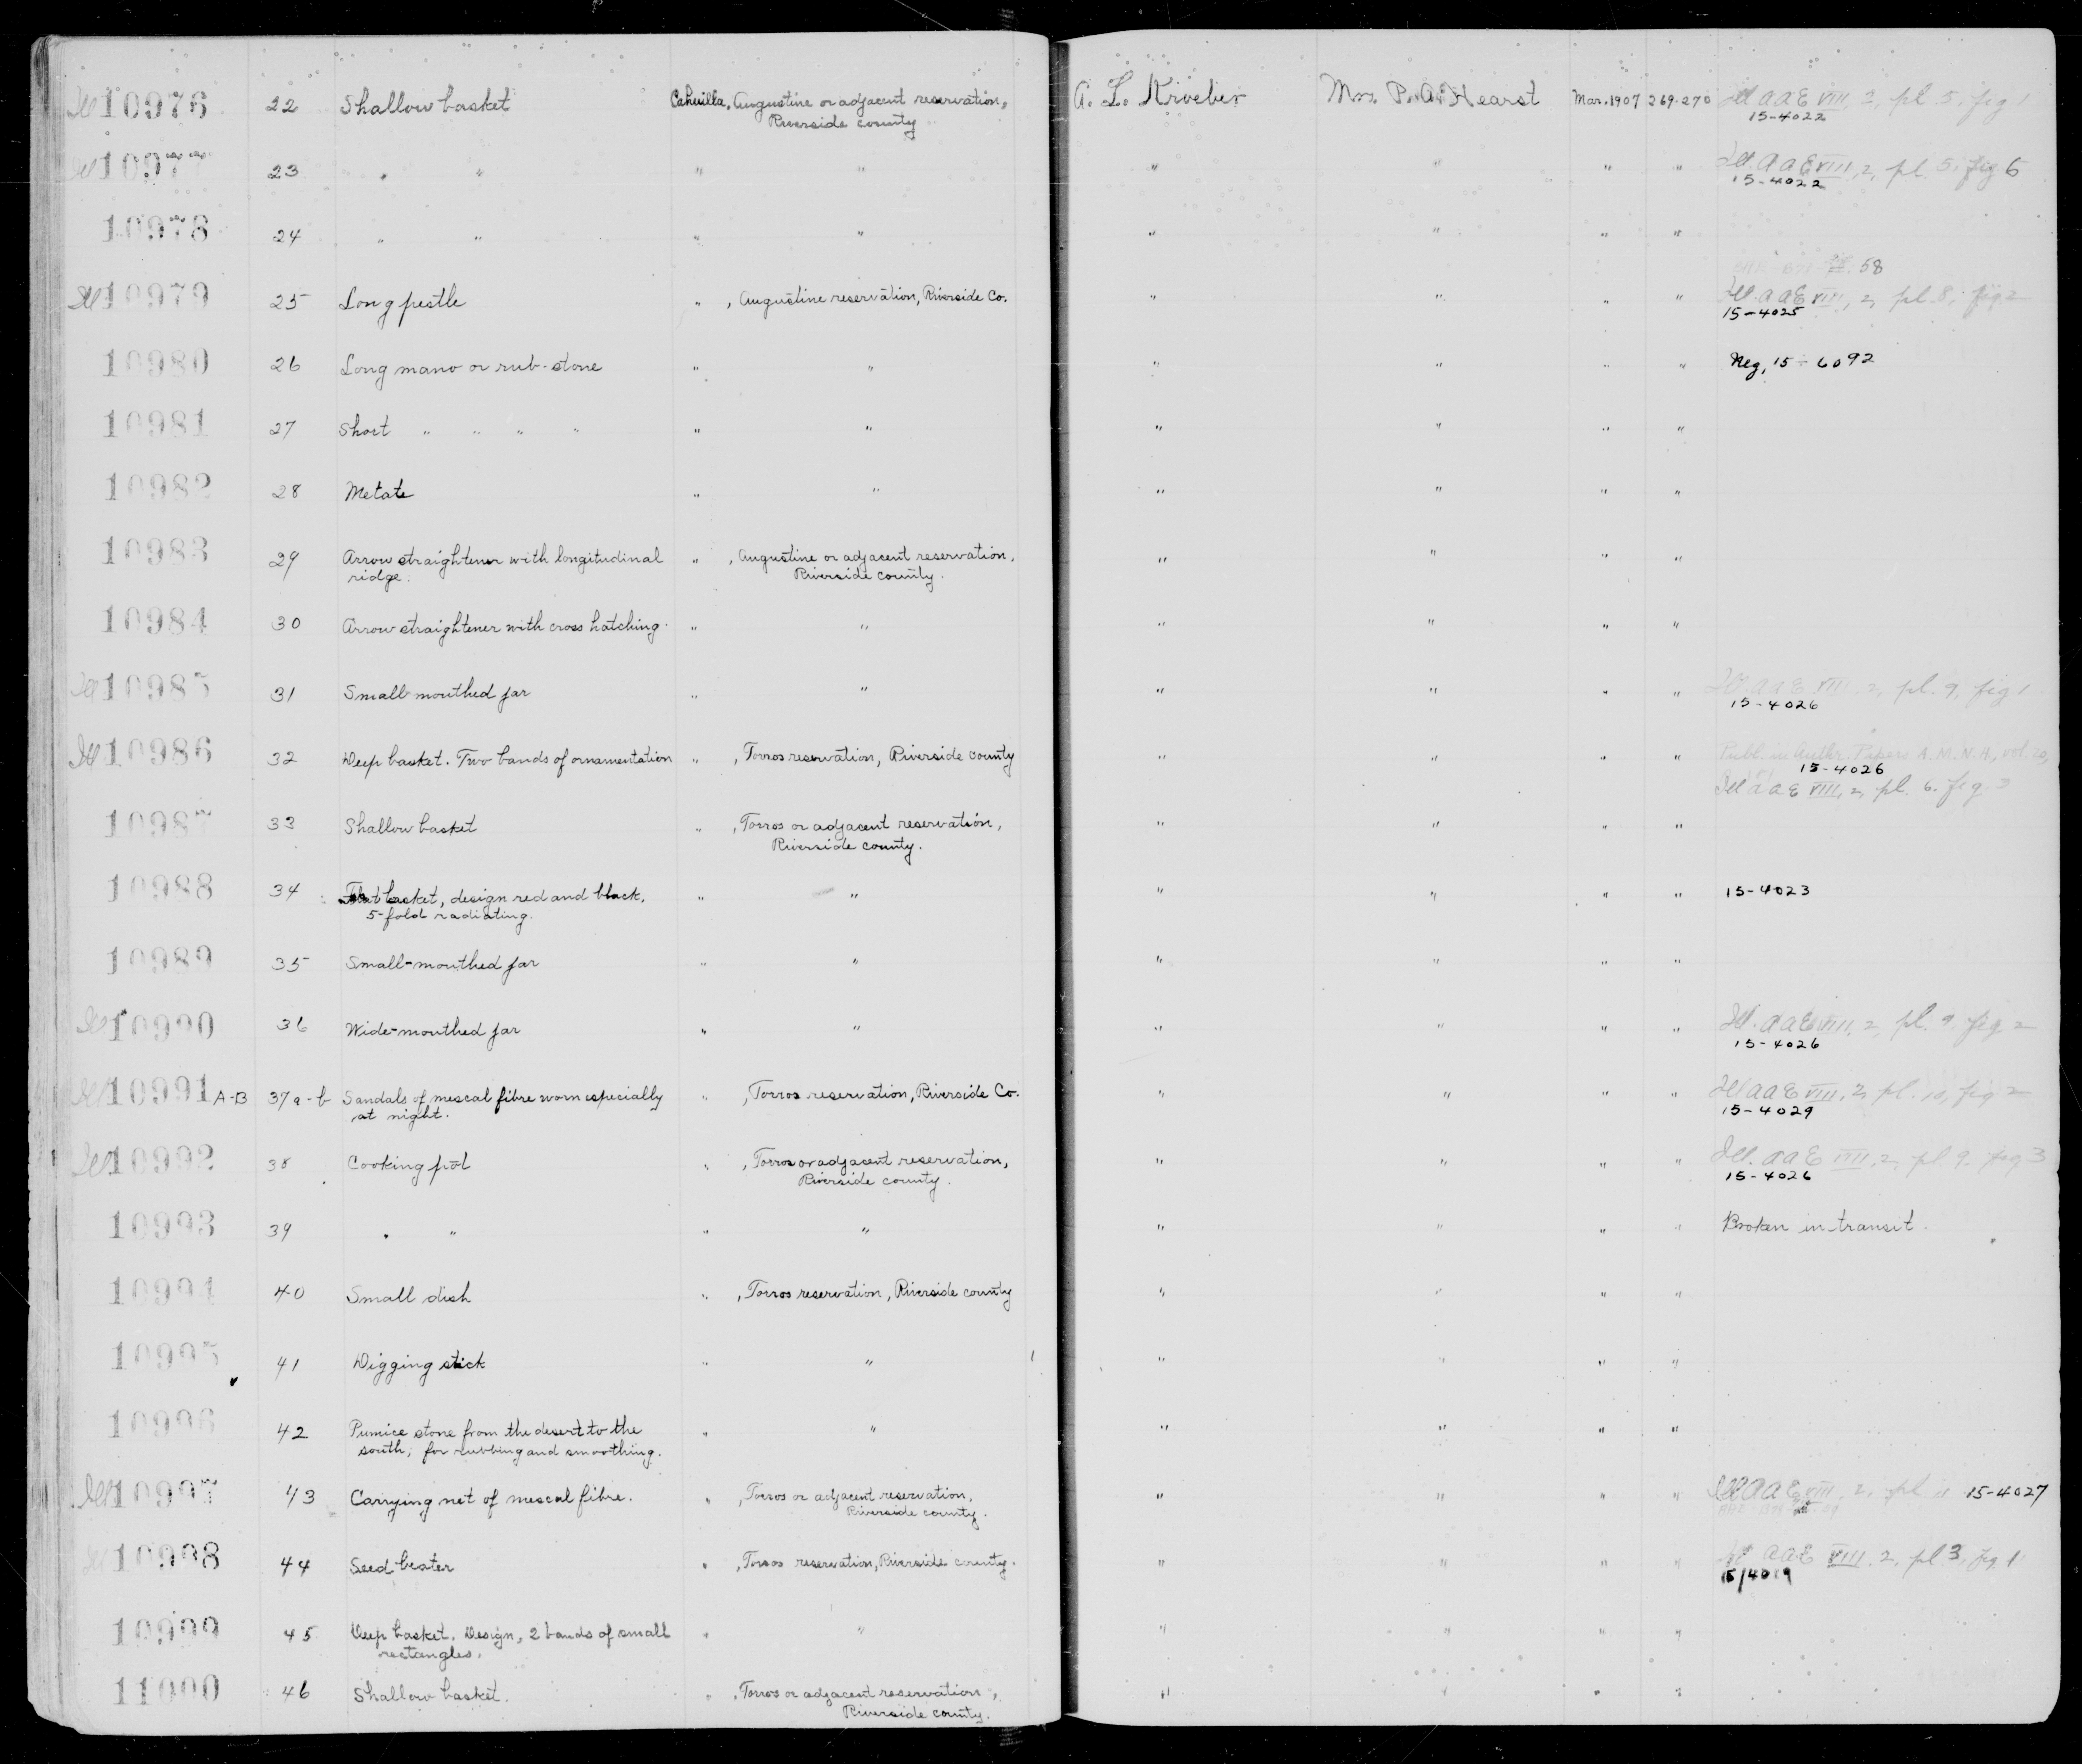 Ill 10976 22 Shallow basket Cahuilla, Augustine or adjacent reservation, A. L. Kroeber Mrs. P. A. Hearst Mar. 1907 269-270 Ill AAE VIII, 2, pl. 5, fig 1
Riverside county 15-4022
Ill 10977 23 " " " " " " " " Ill. AAE VIII, 2, pl. 5, fig 6
15-4022
10978 24 " " " " " " " "
58
Ill 10979 25 Long pestle " , Augustine reservation, Riverside Co. " " " " Ill. AAE VIII, 2, pl. 8, fig 2
15-4025
10980 26 Long mano or rub-stone " " " " " " Neg. 15-6092
10981 27 Short " " " " " " " " " "
10982 28 Metate " " " " " "
10983 29 Arrow straightener with longitudinal " , Augustine or adjacent reservation, " " " "
ridge. Riverside county.
10984 30 Arrow straightener with cross hatching. " " " " " "
Ill 10985 31 Small mouthed jar " " " " " " Ill AAE VIII, 2, pl. 9, fig 1
15-4026
Ill 10986 32 Deep basket. Two bands of ornamentation " , Torros reservation, Riverside county " " " " Publ. in Anthr. Papers A.M.N.H., vol. 20,
15-4026
Ill AAE VIII, 2, pl. 6. fig. 3
10987 33 Shallow basket " , Torros or adjacent reservation, " " " "
Riverside county.
10988 34 Flat basket, design red and black, " " " " " " 15-4023
5-fold radiating.
10989 35 Small-mouthed jar " " " " " "
Ill 10990 36 Wide-mouthed jar " " " " " " Ill. AAE VIII, 2, pl. 9 fig 2
15-4026
Ill 10991 A-B 37a-b Sandals of mescal fibre worn especially " , Torros reservation, Riverside Co. " " " " Ill AAE VIII, 2, pl. 10, fig 2
at night. 15-4029
Ill 10992 38 Cooking pot " , Torros or adjacent reservation, " " " " Ill. AAE VIII, 2, pl 9. fig 3
Riverside county. 15-4026
10993 39 " " " " " " " " Broken in transit.
10994 40 Small dish " , Torros reservation, Riverside county " " " "
10995 41 Digging stick " " " " " "
10996 42 Pumice stone from the desert to the " " " " " "
south; for rubbing and smoothing.
Ill 10997 43 Carrying net of mescal fibre. " , Torros or adjacent reservation, " " " " Ill AAE VIII, 2, pl 15-4027
Riverside county.
Ill 10998 44 Seed beater " , Torros reservation, Riverside county. " " " " Ill AAE VIII. 2, pl 3, fig 1
15/4019
10999 45 Deep basket. Design, 2 bands of small " " " " " "
rectangles.
11000 46 Shallow basket. " , Torros or adjacent reservation, " " " "
Riverside county.